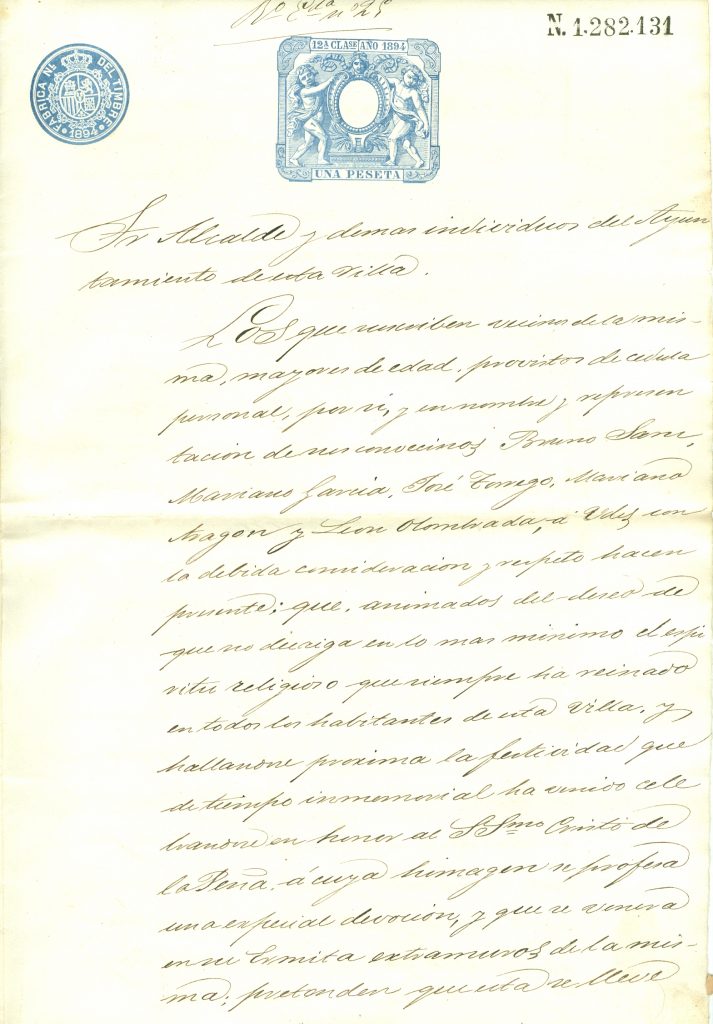 Nº 25
N. 1.282.131
FABRICA NL. DEL TIMBRE
1894
12ª CLASE AÑO 1894
UNA PESETA
Sr Alcalde y demas individuos del Ayun
tamiento de esta Villa.
Los que suscriben vecinos de la mis-
ma, mayores de edad, provistos de cedula
personal, por si, y en nombre y represen
tacion de sus convecinos Bruno Sanz,
Mariano Garcia, José Torrego, Mariano
Aragon y Leon Olombrada, á Vdes con
la debida consideracion y respeto hacen
presente: que, animados del deseo de
que no decaiga en lo mas minimo el espi
ritu religioso que siempre ha reinado
en todos los habitantes de esta Villa, y
hallandose proxima la festividad que
de tiempo inmemorial ha venido cele
brandose en honor al SSmo Cristo de
la Peña, á cuya himagen se profesa
una especial devoción, y que se venera
en su Ermita extramuros de la mis-
ma; pretenden que esta se lleve